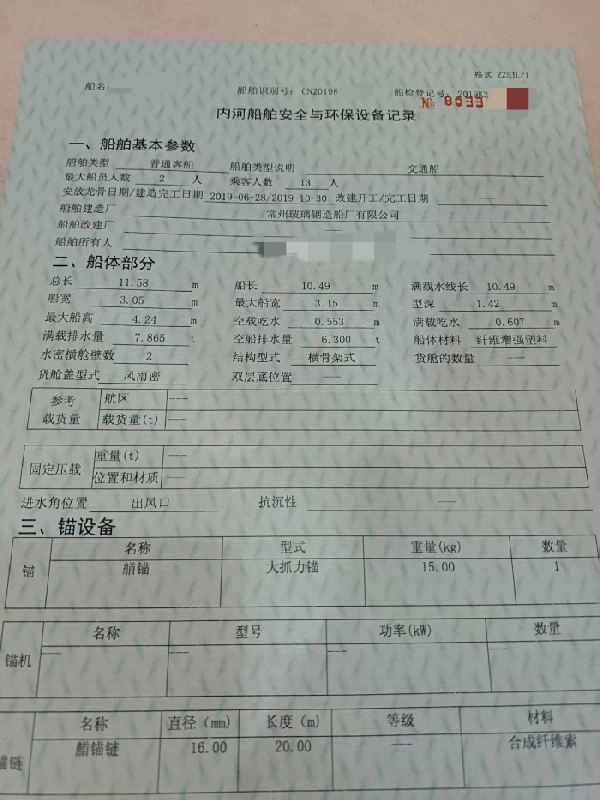 格式 ZZSJL/1
船名 船舶识别号: CN20198 船检登记号: 2019K2
№ 8033
内河船舶安全与环保设备记录
一、船舶基本参数
船舶类型 普通客船 船舶类型说明 交通船
最大船员人数 2 人 乘客人数 13 人
安放龙骨日期/建造完工日期 2019-06-28/2019-10-30 改建开工/完工日期 ---
船舶建造厂 常州玻璃钢造船厂有限公司
船舶改建厂 ---
船舶所有人
二、船体部分
总长 11.58 m 船长 10.49 m 满载水线长 10.49 m
船宽 3.05 m 最大船宽 3.15 m 型深 1.42 m
最大船高 4.24 m 空载吃水 0.553 m 满载吃水 0.607 m
满载排水量 7.865 t 空船排水量 6.300 t 船体材料 纤维增强塑料
水密横舱壁数 2 结构型式 横骨架式 货舱的数量 ---
货舱盖型式 风雨密 双层底位置 ---
参考载货量 航区 ---
载货量(t) ---
固定压载 重量(t) ---
位置和材质 ---
进水角位置 出风口 抗沉性 ---
三、锚设备
锚 名称 型式 重量(kg) 数量
艏锚 大抓力锚 15.00 1
锚机 名称 型号 功率(kW) 数量
--- --- --- ---
锚链 名称 直径(mm) 长度(m) 等级 材料
艏锚链 16.00 20.00 --- 合成纤维索